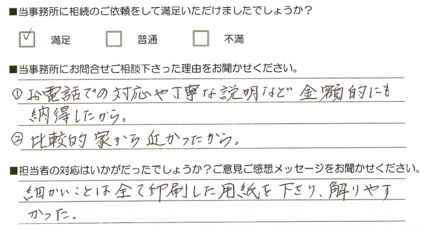 ■当事務所に相続のご依頼をして満足いただけましたでしょうか?
満足 普通 不満
■当事務所にお問合せご相談下さった理由をお聞かせください。
①お電話での対応や丁寧な説明など金額的にも
納得したから。
②比較的家から近かったから。
■担当者の対応はいかがだったでしょうか?ご意見ご感想メッセージをお聞かせください。
細かいことは全て印刷した用紙を下さり、解りやす
かった。